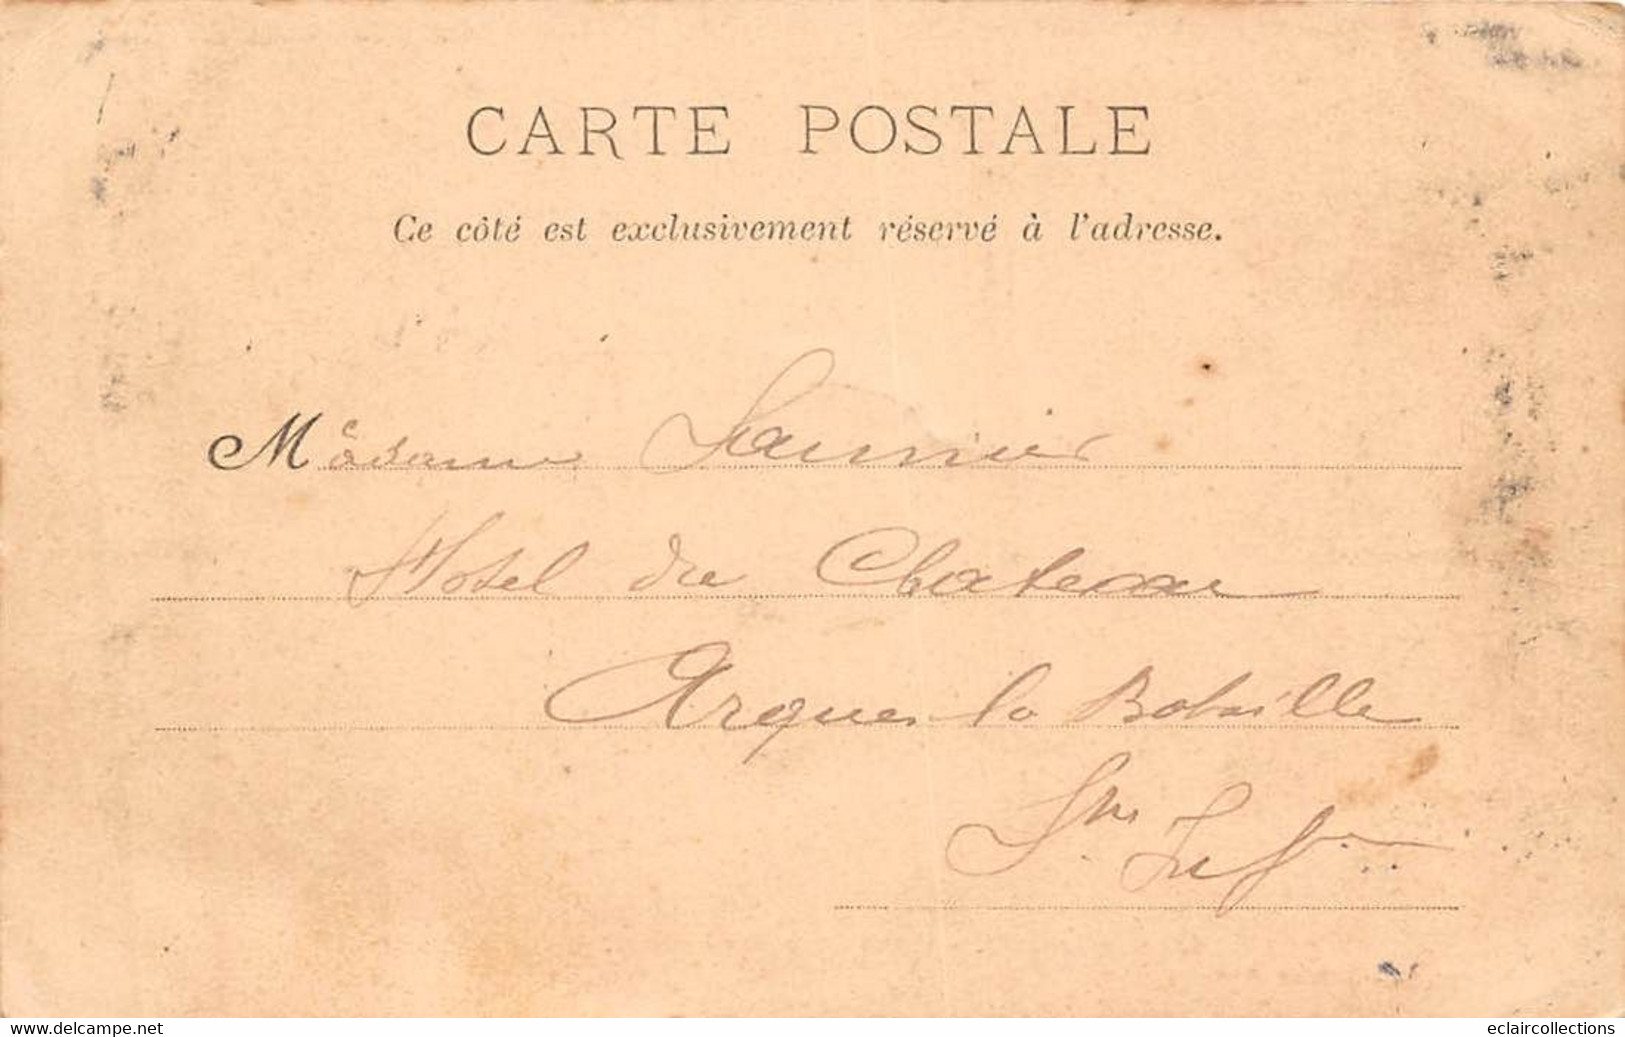 CARTE POSTALE
Ce côté est exclusivement réservé à l'adresse.
Madame Saunier
Hotel du Chateau
Arques la Bataille
Sne Infre
www.delcampe.net
eclaircollections